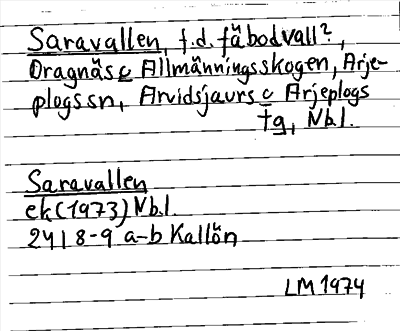 Saravallen, f.d. fäbodvall?,
Dragnäs c Allmänningsskogen, Arje-
plogssn, Arvidsjaurs c Arjeplogs
tg, Nb.l.
Saravallen
ek (1973) Nb.l.
24I 8-9 a-b Kallön
LM 1974